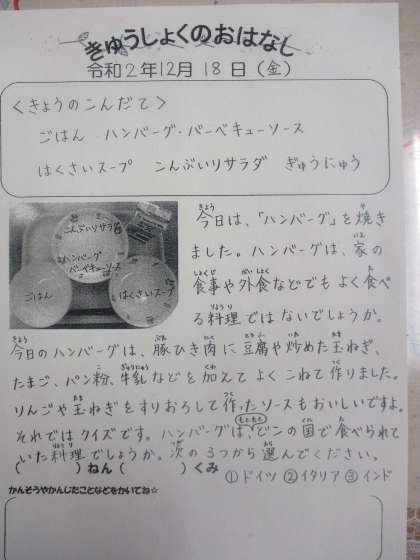 きゅうしょくのおはなし
令和2年12月18日(金)
<きょうのこんだて>
ごはん ハンバーグ・バーベキューソース
はくさいスープ こんぶいりサラダ ぎゅうにゅう
こんぶいりサラダ
ハンバーグ
バーベキューソース
ごはん
はくさいスープ
今日は、「ハンバーグ」を焼き
ました。ハンバーグは、家の
食事や外食などでもよく食べ
る料理ではないでしょうか。
今日のハンバーグは、豚ひき肉に豆腐や炒めた玉ねぎ、
たまご、パン粉、牛乳などを加えてよくこねて作りました。
りんごや玉ねぎをすりおろして作ったソースもおいしいですよ。
それではクイズです。ハンバーグは、もともとどこの国で食べられて
いた料理でしょうか。次の3つから選んでください。
( )ねん( )くみ ①ドイツ ②イタリア ③インド
かんそうやかんじたことなどをかいてね☆